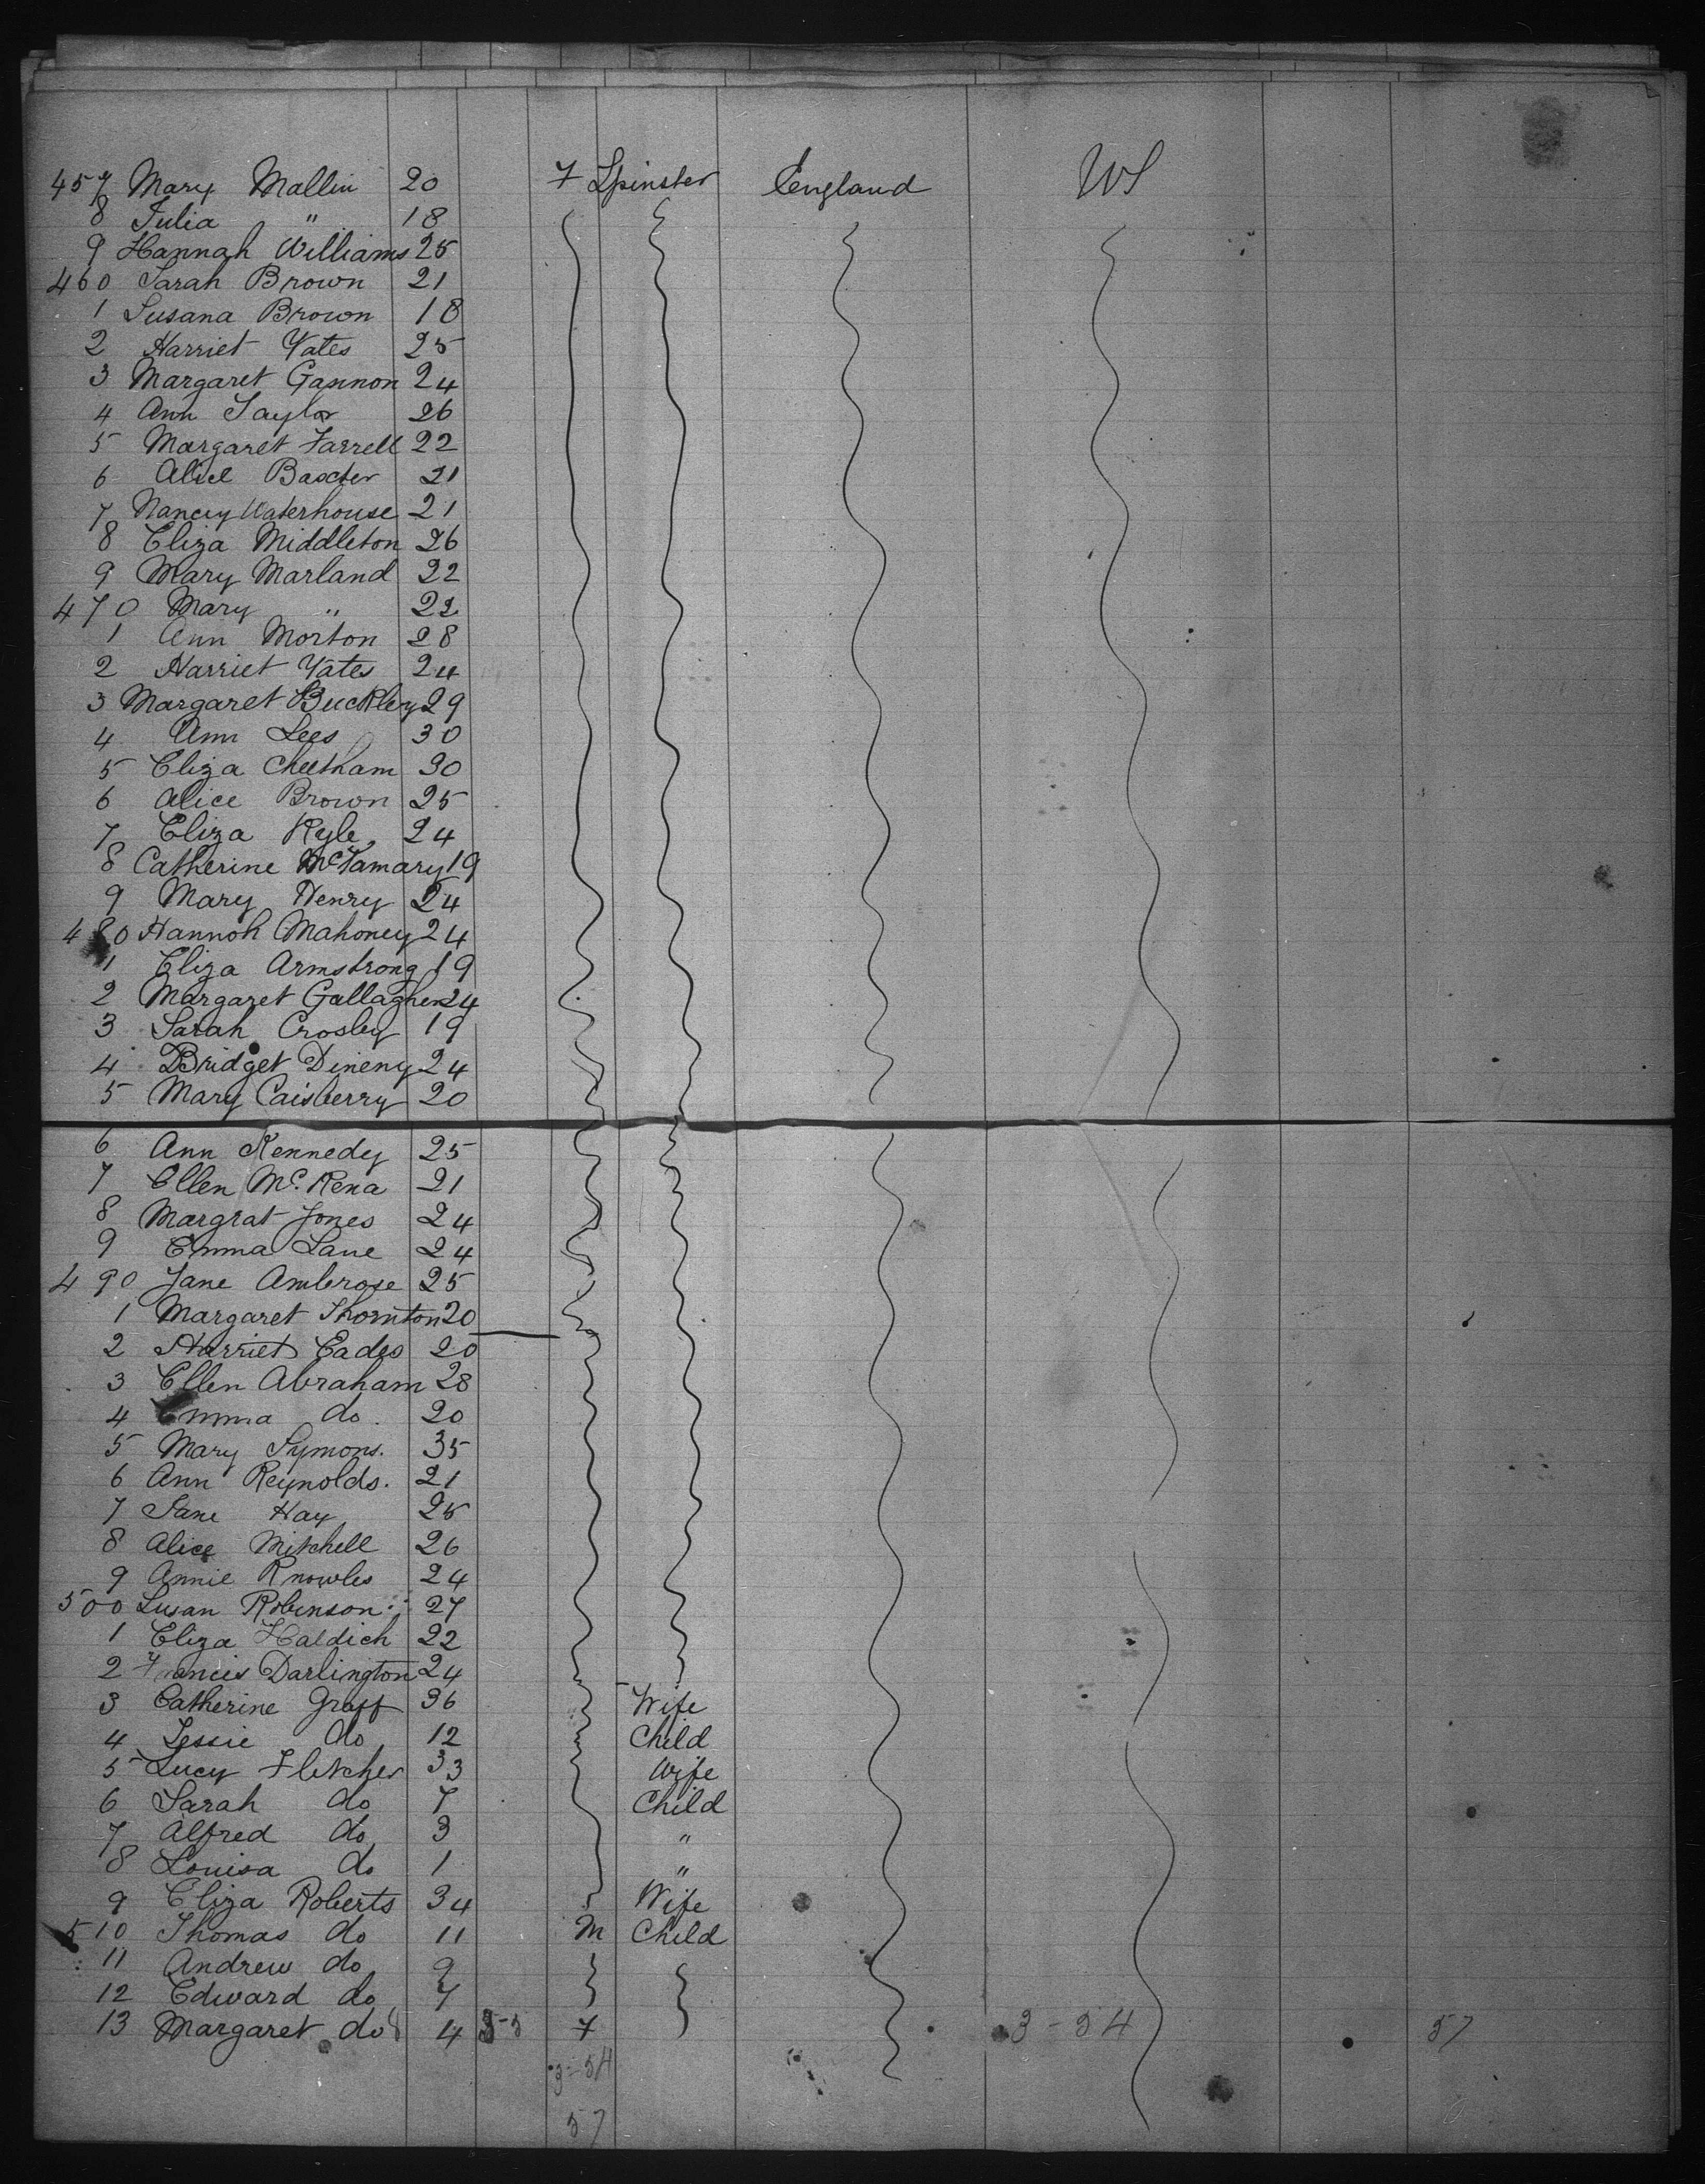 457 Mary Mallin 20 F Spinster England US
8 Julia " 18
9 Hannah Williams 25
460 Sarah Brown 21
1 Susana Brown 18
2 Harriet Yates 25
3 Margaret Gannon 24
4 Ann Taylor 26
5 Margaret Farrell 22
6 Alice Baxter 21
7 Nancy Waterhouse 21
8 Eliza Middleton 26
9 Mary Marland 22
470 Mary " 22
1 Ann Morton 28
2 Harriet Yates 24
3 Margaret Buckley 29
4 Ann Lees 30
5 Eliza Cheetham 30
6 Alice Brown 25
7 Eliza Kyle 24
8 Catherine 19
9 Mary Henry 24
480 Hannoh Mahoney 24
1 Eliza Armstrong 19
2 Margaret Gallagher 24
3 Sarah Crosley 19
4 Bridget Dineny 24
5 Mary Caisberry 20
6 Ann Kennedy 25
7 Ellen Mc. Kena 21
8 Margrat Jones 24
9 Emma Lane 24
490 Jane Ambrose 25
1 Margaret Thornton 20
2 Harriet Eades 20
3 Ellen Abraham 28
4 Emma do. 20
5 Mary Symons. 35
6 Ann Reynolds. 21
7 Jane Hay 25
8 Alice Mitchell 26
9 Annie Knowles 24
500 Susan Robinson 27
1 Eliza Haldich 22
2 Francis Darlington 24
3 Catherine Graff 36 Wife
4 Jessie do 12 Child
5 Lucy Fletcher 33 Wife
6 Sarah do 7 Child
7 Alfred do 3 "
8 Louisa do 1 "
9 Eliza Roberts 34 Wife
510 Thomas do 11 M Child
11 Andrew do 9
12 Edward do 7
13 Margaret do 4 3-5 F 3-54 57
3-54
57